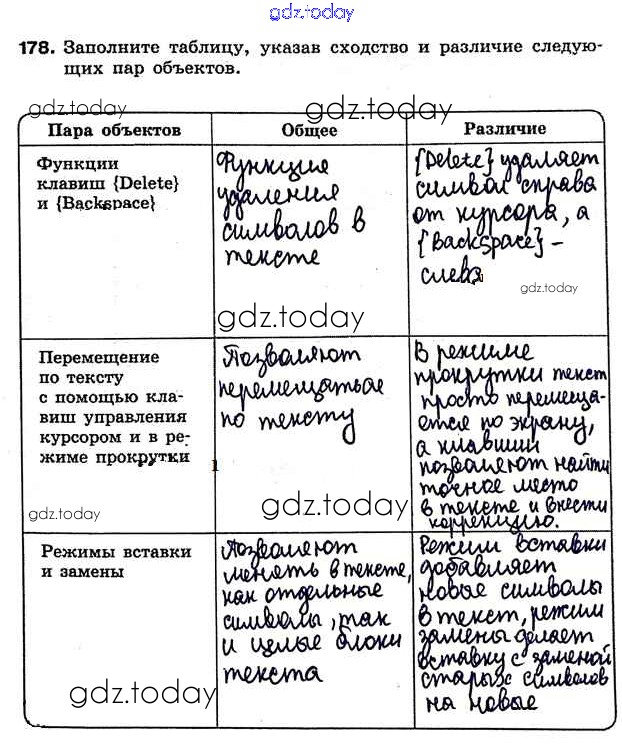 gdz.today
178. Заполните таблицу, указав сходство и различие следую-
щих пар объектов.
gdz.today
gdz.today
Пара объектов
Общее
Различие
Функции
клавиш {Delete}
и {Backspace}
Функция
удаления
символов в
тексте
{Delete} удаляет
символ справа
от курсора, а
{Backspace} –
слева
gdz.today
gdz.today
Перемещение
по тексту
с помощью кла-
виш управления
курсором и в ре-
жиме прокрутки
Позволяют
перемещаться
по тексту
1
В режиме
прокрутки текст
просто перемеща-
ется по экрану,
а клавиши
позволяют найти
точное место
в тексте и внести
коррекцию.
gdz.today
gdz.today
Режимы вставки
и замены
Позволяют
менять в тексте,
как отдельные
символы, так
и целые блоки
текста
Режим вставки
добавляет
новые символы
в текст, режим
замены делает
вставку с заменой
старых символов
на новые
gdz.today
gdz.today